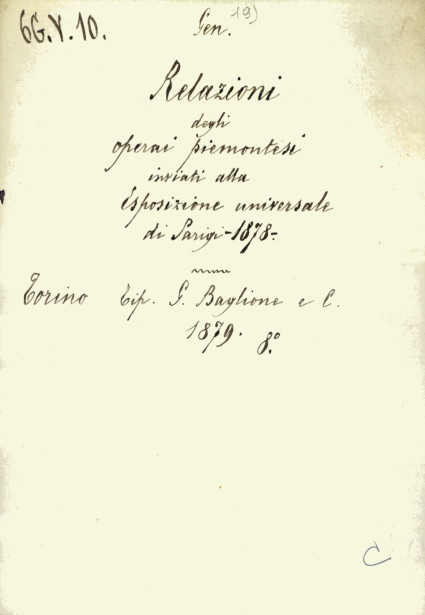 6G.Y.10. Gen. 19)
Relazioni
degli
operai piemontesi
inviati alla
Esposizione universale
di Parigi -1878-
Torino Tip. G. Baglione e C.
1879. 8º
C